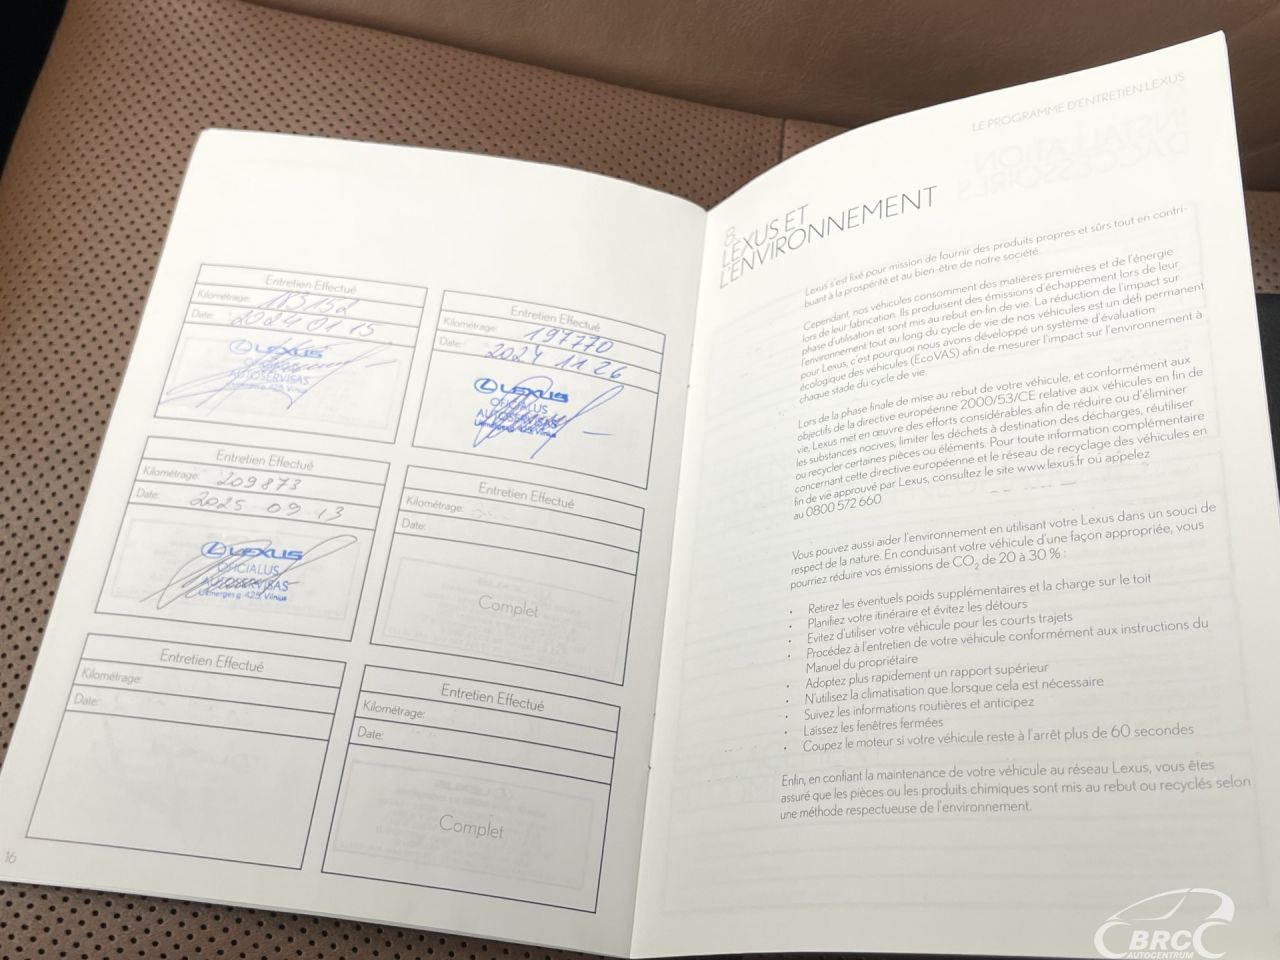 Entretien Effectué
Kilométrage: 183152
Date: 2024 01 15
LEXUS
AUTOSERVISAS
Entretien Effectué
Kilométrage: 197770
Date: 2024 11 26
LEXUS
OFICIALUS
AUTOSERVISAS
Ukmergės g. 425, Vilnius
Entretien Effectué
Kilométrage: 209873
Date: 2025 - 09 - 13
LEXUS
OFICIALUS
AUTOSERVISAS
Ukmergės g. 425, Vilnius
Entretien Effectué
Kilométrage:
Date:
Complet
Entretien Effectué
Kilométrage:
Date:
Entretien Effectué
Kilométrage:
Date:
Complet
16
LE PROGRAMME D'ENTRETIEN LEXUS
8.
LEXUS ET
L'ENVIRONNEMENT
Lexus s'est fixé pour mission de fournir des produits propres et sûrs tout en contri-
buant à la prospérité et au bien-être de notre société.
Cependant, nos véhicules consomment des matières premières et de l'énergie
lors de leur fabrication. Ils produisent des émissions d'échappement lors de leur
phase d'utilisation et sont mis au rebut en fin de vie. La réduction de l'impact sur
l'environnement tout au long du cycle de vie de nos véhicules est un défi permanent
pour Lexus, c'est pourquoi nous avons développé un système d'évaluation
écologique des véhicules (EcoVAS) afin de mesurer l'impact sur l'environnement à
chaque stade du cycle de vie.
Lors de la phase finale de mise au rebut de votre véhicule, et conformément aux
objectifs de la directive européenne 2000/53/CE relative aux véhicules en fin de
vie, Lexus met en œuvre des efforts considérables afin de réduire ou d'éliminer
les substances nocives, limiter les déchets à destination des décharges, réutiliser
ou recycler certaines pièces ou éléments. Pour toute information complémentaire
concernant cette directive européenne et le réseau de recyclage des véhicules en
fin de vie approuvé par Lexus, consultez le site www.lexus.fr ou appelez
au 0800 572 660
Vous pouvez aussi aider l'environnement en utilisant votre Lexus dans un souci de
respect de la nature. En conduisant votre véhicule d'une façon appropriée, vous
pourriez réduire vos émissions de CO2 de 20 à 30 % :
• Retirez les éventuels poids supplémentaires et la charge sur le toit
• Planifiez votre itinéraire et évitez les détours
• Evitez d'utiliser votre véhicule pour les courts trajets
• Procédez à l'entretien de votre véhicule conformément aux instructions du
Manuel du propriétaire
• Adoptez plus rapidement un rapport supérieur
• N'utilisez la climatisation que lorsque cela est nécessaire
• Suivez les informations routières et anticipez
• Laissez les fenêtres fermées
• Coupez le moteur si votre véhicule reste à l'arrêt plus de 60 secondes
Enfin, en confiant la maintenance de votre véhicule au réseau Lexus, vous êtes
assuré que les pièces ou les produits chimiques sont mis au rebut ou recyclés selon
une méthode respectueuse de l'environnement.
BRC
AUTOCENTRUM